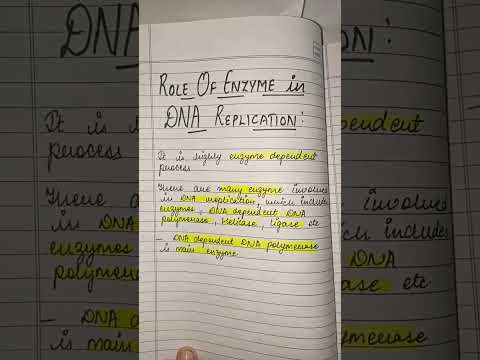 ROLE OF ENZYME in
DNA REPLICATION:
It is highly enzyme dependent
process
There are many enzyme involved
in DNA replication, which include
enzymes, DNA dependent DNA
polymerase, Helicase, ligase etc.
– DNA dependent DNA polymerase
is main enzyme